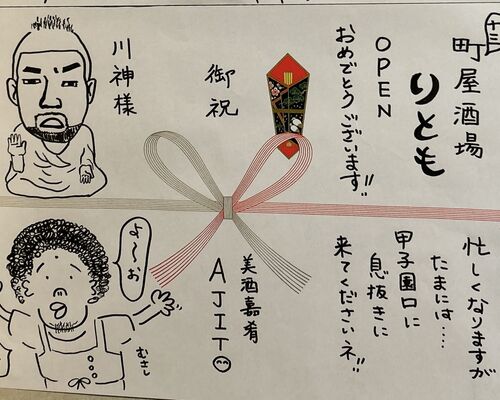 十三
町屋酒場
りとも
OPEN
おめでとうございます!!
御祝
川神様
忙しくなりますが
たまには....
甲子園口に
息抜きに
来てくださいネ!!
美酒嘉肴
AJITO
よ〜お
むさし